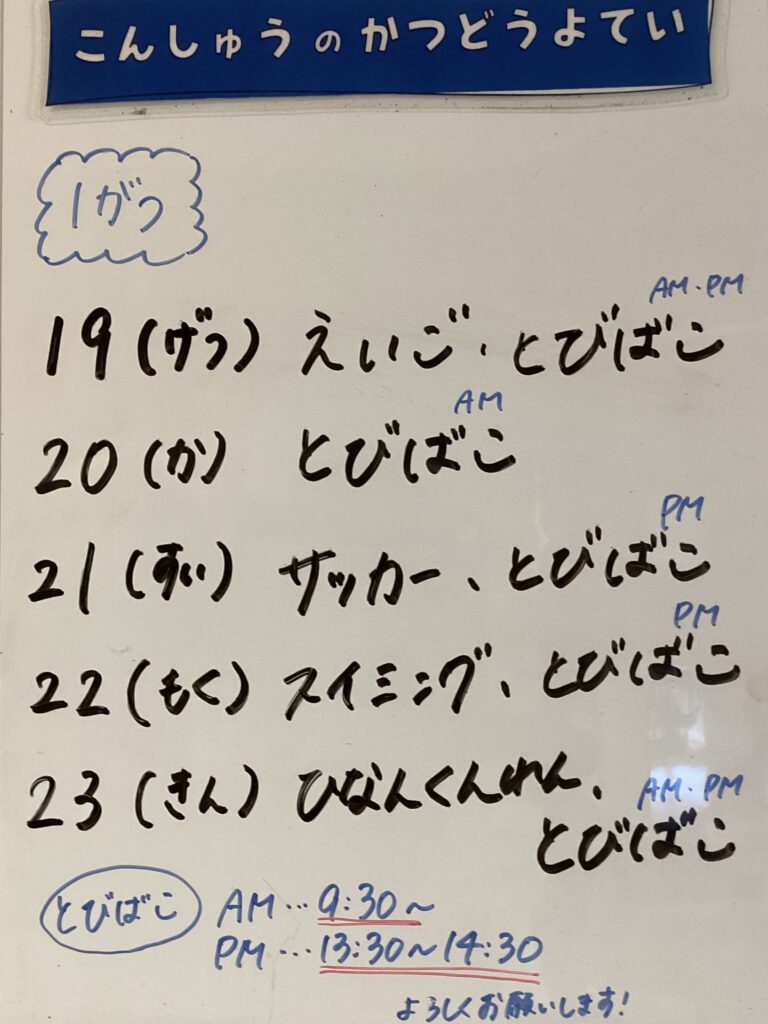 こんしゅうのかつどうよてい
1がつ
AM・PM
19(げつ) えいご、とびばこ
AM
20(か) とびばこ
PM
21(すい) サッカー、とびばこ
PM
22(もく) スイミング、とびばこ
23(きん) ひなんくんれん、
AM・PM
とびばこ
とびばこ AM…9:30~
PM…13:30~14:30
よろしくお願いします!